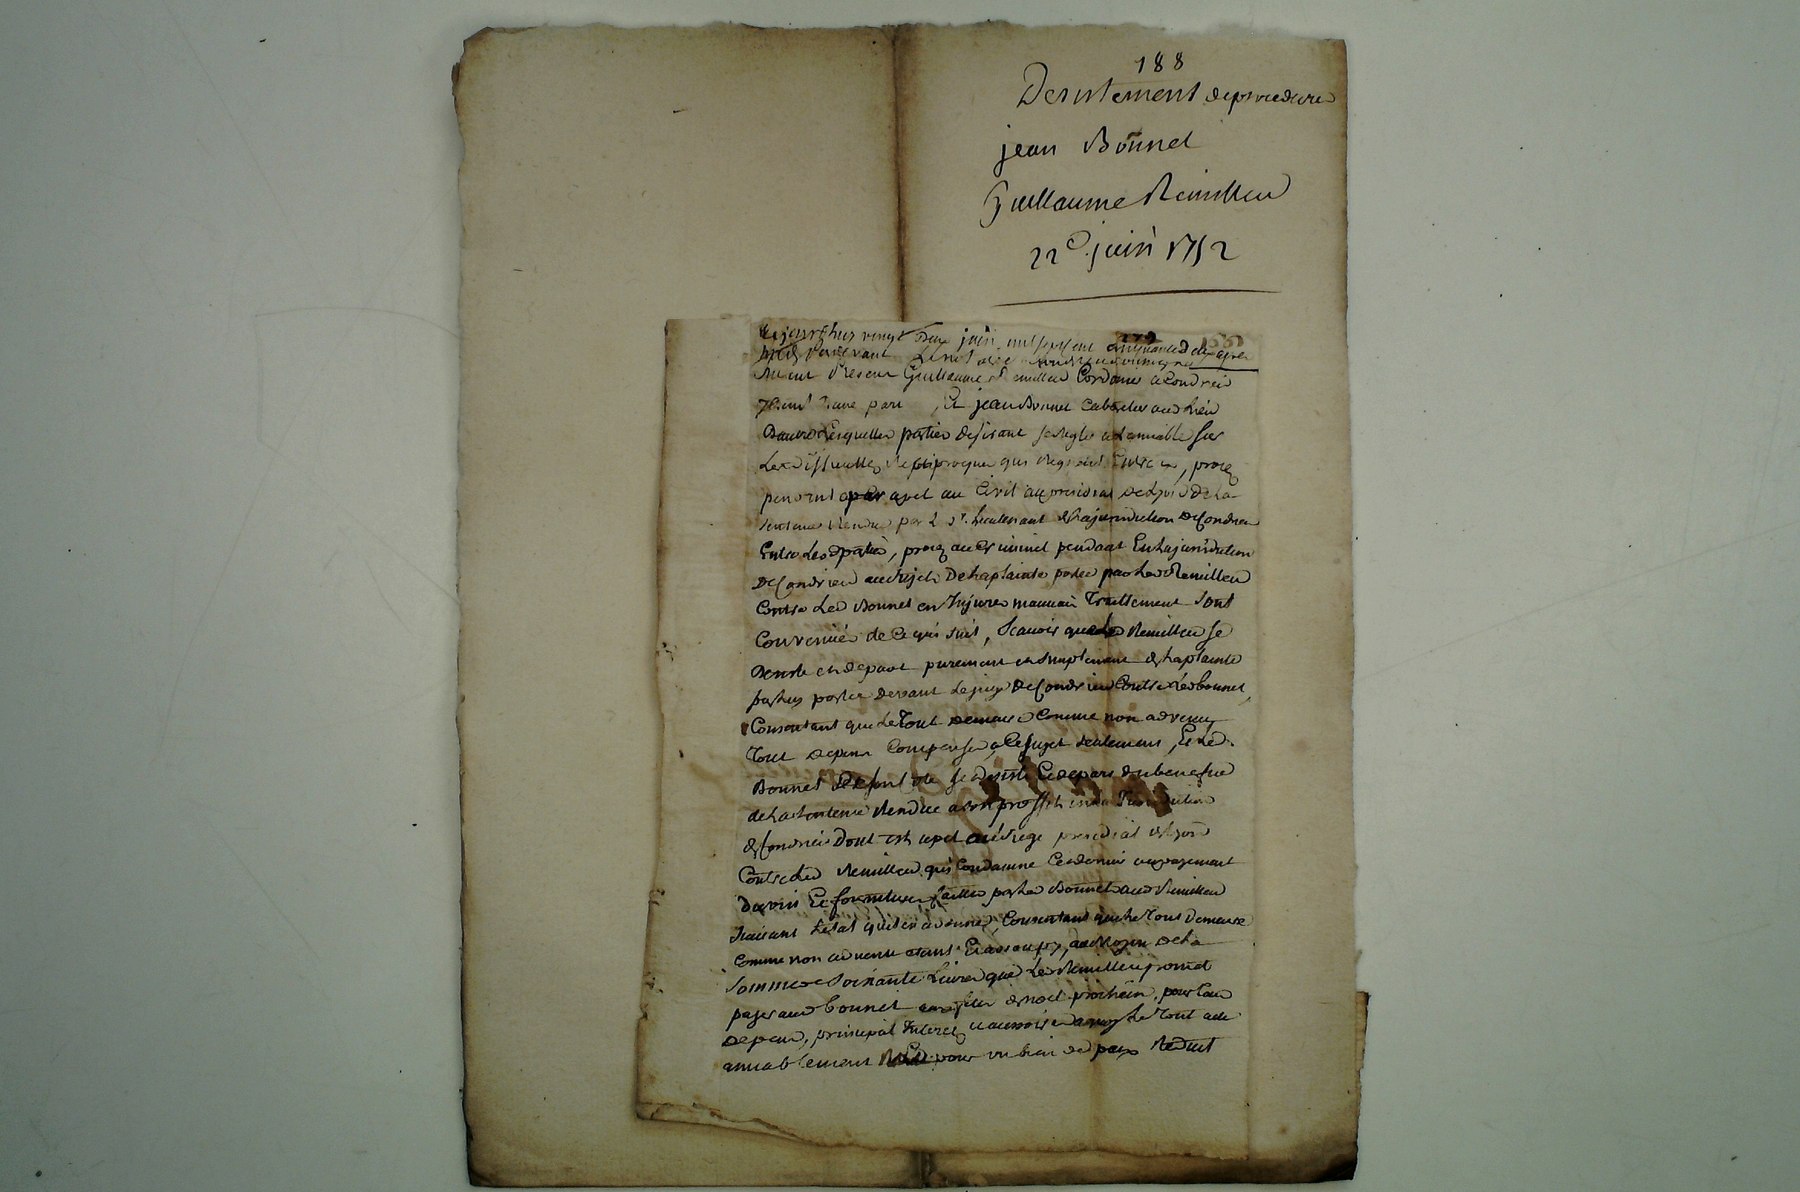 188
Desistement de procedure
jean Bonnet
Guillaume Remilleu
22e juin 1752
aujourdhuy vingt deux juin mil sept cent cinquante deux apres
midy pardevant
present Guillaume Remilleu Cordonnier a Condrieu
d'une part, Et jean Bonnet Cabaretier aud lieu
Dautre Lesquelles parties desirant se regler a Lamiable sur
Les difficultez reciproques qui regnent Entre eux, procez
pendant par apel au Civil au presidial de Lyon de la
sentence rendue par le sr. Lieutenant de la juridiction de Condrieu
Entre Lesd parties, procez au Criminel pendant En la juridiction
de Condrieu au sujet De la plainte portée par led Remilleu
Contre Led Bonnet en Injures mauvais Traittement sont
Convenües de Ce qui suit, Scavoir que led Remilleu se
desiste et depart purement et simplement de la plainte
par luy portée devant Le juge de Condrieu Contre Led bonnet,
Consentant que Le Tout demeure Comme non advenu
Tout depens Compensé a Ce sujet seulement, Et Led.
Bonnet se desiste Et depart du benefice
de la sentence Rendue a son proffit en la Juridiction
de Condrieu Dont est apel au siege presidial de Lyon
Contre Led Remilleu qui Condamne Ce dernier au payement
du vin Et fournitures faittes par led Bonnet aud Remilleu
suivant Létat quil en a donné, Consentant que le Tout demeure
Comme non advenu et assoupy, au Moyen de la
somme de soixante Livres que Led Remilleu promet
payer aud bonnet aux fetes de noel prochain, pour Tous
depens, principal Interets le Tout
amiablement pour un bien de paix Reduit